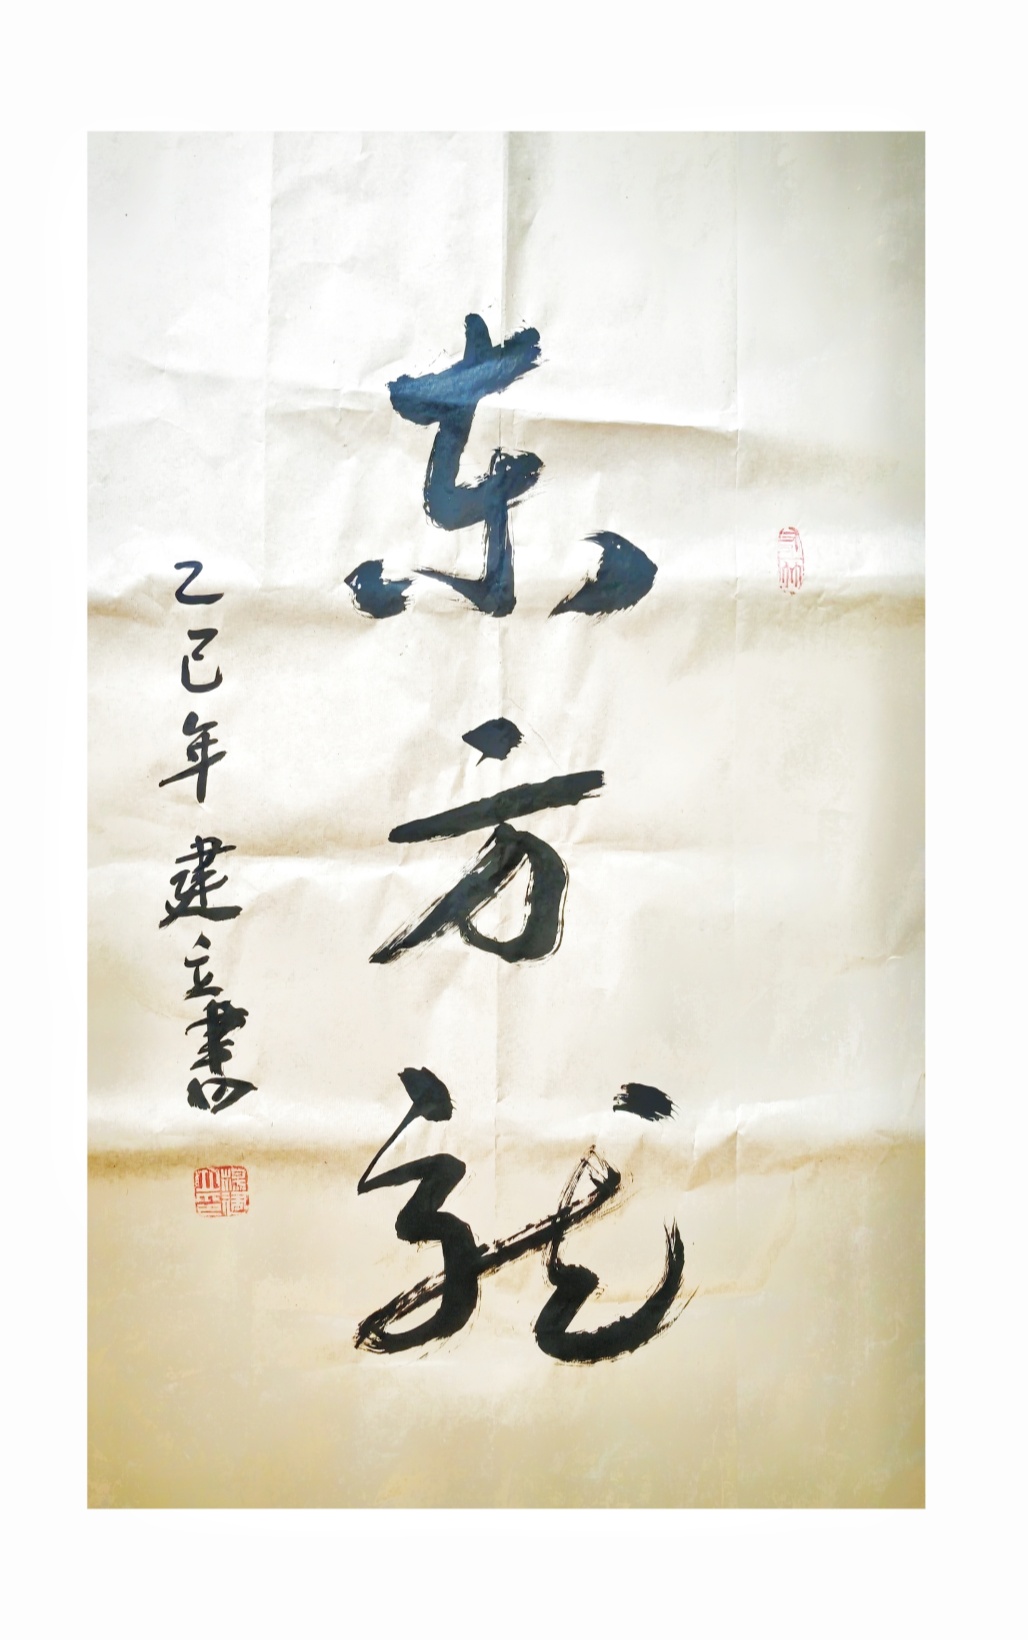 东方龙
乙巳年 建立書